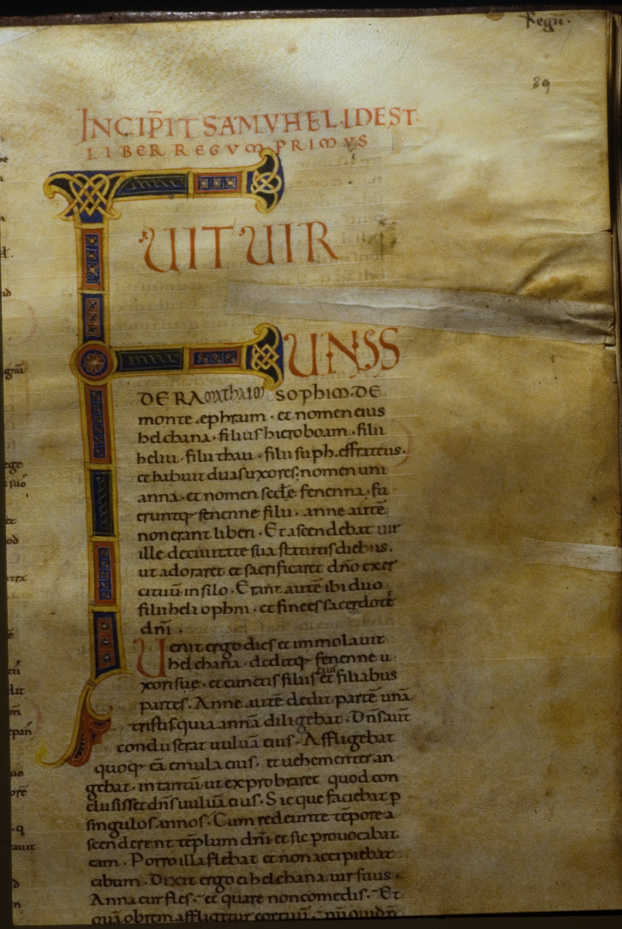 Regũ.
89
INCIP̃IT SAMVHEL ID EST
LIBER REGVM PRIMUS
FUIT UIR
UNUS
DE RAMATHAIM SOPHIM. DE
monte .ephraim . et nomen eius
helchana . filius hieroboam . filii
heliu . filii thau . filii suph . effrateus .
et habuit duas uxores . nomen uni
anna . et nomen secd̄e fenenna . fu
eruntq; fenenne filii . anne autẽ
non erant liberi . Et ascendebat uir
ille de ciuitate sua statutis diebus .
ut adoraret et sacrificaret dño exer
cituũ in silo . Erañt autẽ ibi duo
filii heli ophni . et finees sacerdotẽ
dñi .
Uenit ergo dies et immolauit
helchana . deditq; fenenne u
xori sue . et cunctis filiis eius et filiabus
partes . Anne autẽ dedit partẽ unã
tristis quia annã diligebat . Dñs aut̃
concluserat uuluã eius . Affligebat
quoq; eã emula eius . et uehementer an
gebat . in tantũ ut exprobraret quod con
clusisset dñs uuluã eius . Sicque faciebat p
singulos annos . Cum redeunte tẽpore a
scenderent tẽplum dñi et sic prouocabat
eam . Porro illa flebat et non accipiebat
cibum . Dixit ergo ei helchana uir suus .
Anna cur fles . et quare non comedis . Et
quã obrem affligitur cor tuũ .